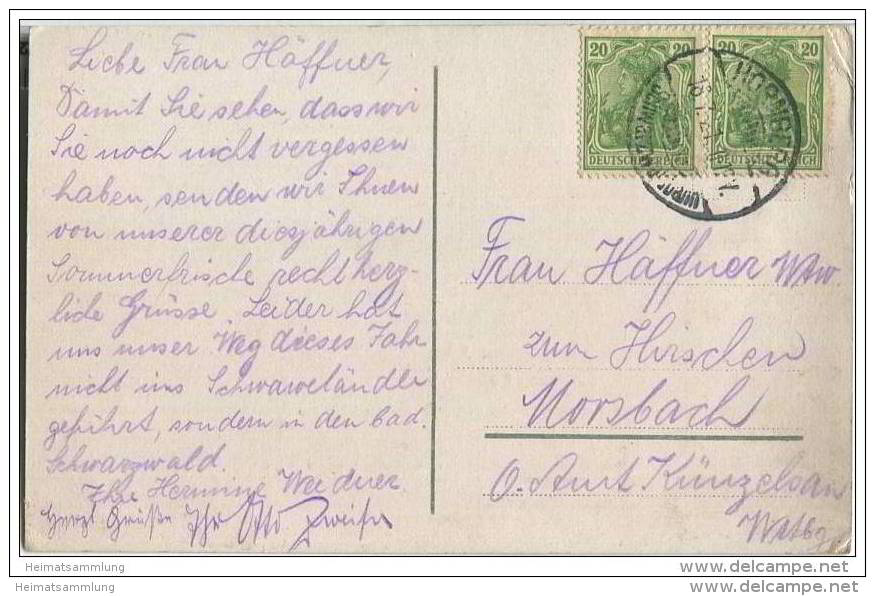 Liebe Frau Häffner,
Damit Sie sehen, dass wir
Sie noch nicht vergessen
haben, senden wir Ihnen
von unserer diesjährigen
Sommerfrische recht herz-
liche Grüsse. Leider hat
uns unser Weg dieses Jahr
nicht ins Schwaweländle
geführt, sondern in den bad.
Schwarzwald.
Ihre Hermine Weidner
Herzl Grüße Ihr Otto
20 20
DEUTSCHES REICH
20 20
DEUTSCHES REICH
HORNBERG
Frau Häffner Wtw
zum Hirschen
Morsbach
O. Amt Künzelsau
Wttbg.
Heimatsammlung
Heimatsammlung
www.delcampe.net
www.delcampe.net